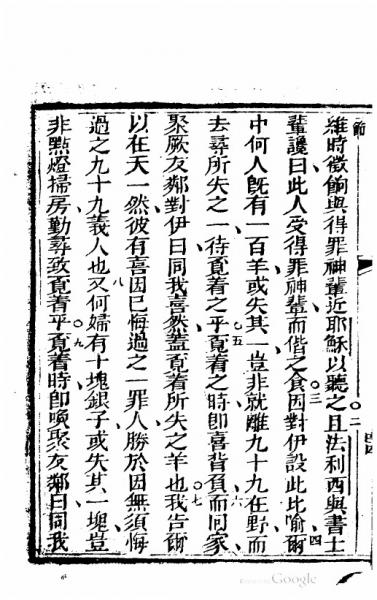 維時徵餉與得罪神輩近耶穌以聽之且法利西與書士
輩讒曰此人受得罪神輩而偕之食因對伊設此比喻爾
中何人既有一百羊或失其一豈非就離九十九在野而
去尋所失之一待覔着之乎覔着之時即喜背負而回家
聚厥友鄰對伊曰同我喜然蓋覔着所失之羊也我告爾
以在天一然彼有喜因已悔過之一罪人勝於因無須悔
過之九十九義人也又何婦有十塊銀子或失其一塊豈
非點燈掃房勤尋致覔着乎覔着時即喚聚友鄰曰同我
二
三
四
五
六
七
八
九
節
Google